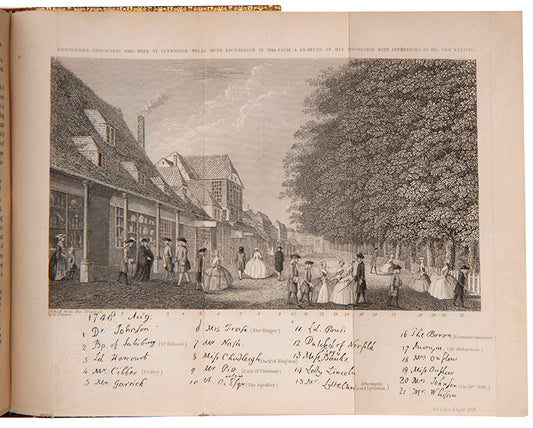 REMARKABLE CHARACTERS WHO WERE AT TUNBRIDGE WELLS WITH RICHARDSON IN 1748, FROM A DRAWING IN HIS POSSESSION WITH REFERENCES IN HIS OWN WRITING.
1748 Aug:
1 Dr. Johnson
2 Bp. of Salisbury (Dr Gilbert)
3 Ld Harcourt
4 Mr. Cibber (Colley)
5 Mr. Garrick
6 Mrs. Frasi (The Singer)
7 Mr. Nash
8 Miss Chudleigh (Duch. of Kingston)
9 Mr. Pitt (Earl of Chatham)
10 A. O. (The Speaker)
11 Ld. Powis
12 Dutchess of Norfolk
13 Miss Banks
14 Lady Lincoln
15 Mr. Lyttelton (Afterwards Lord Lyttelton)
16 The Baron (A German Gamester)
17 Anonym
18 Mrs Onslow
19 Miss Onslow
20 Mrs Johnson (The Drs Wife)
21 Mr. Whiston